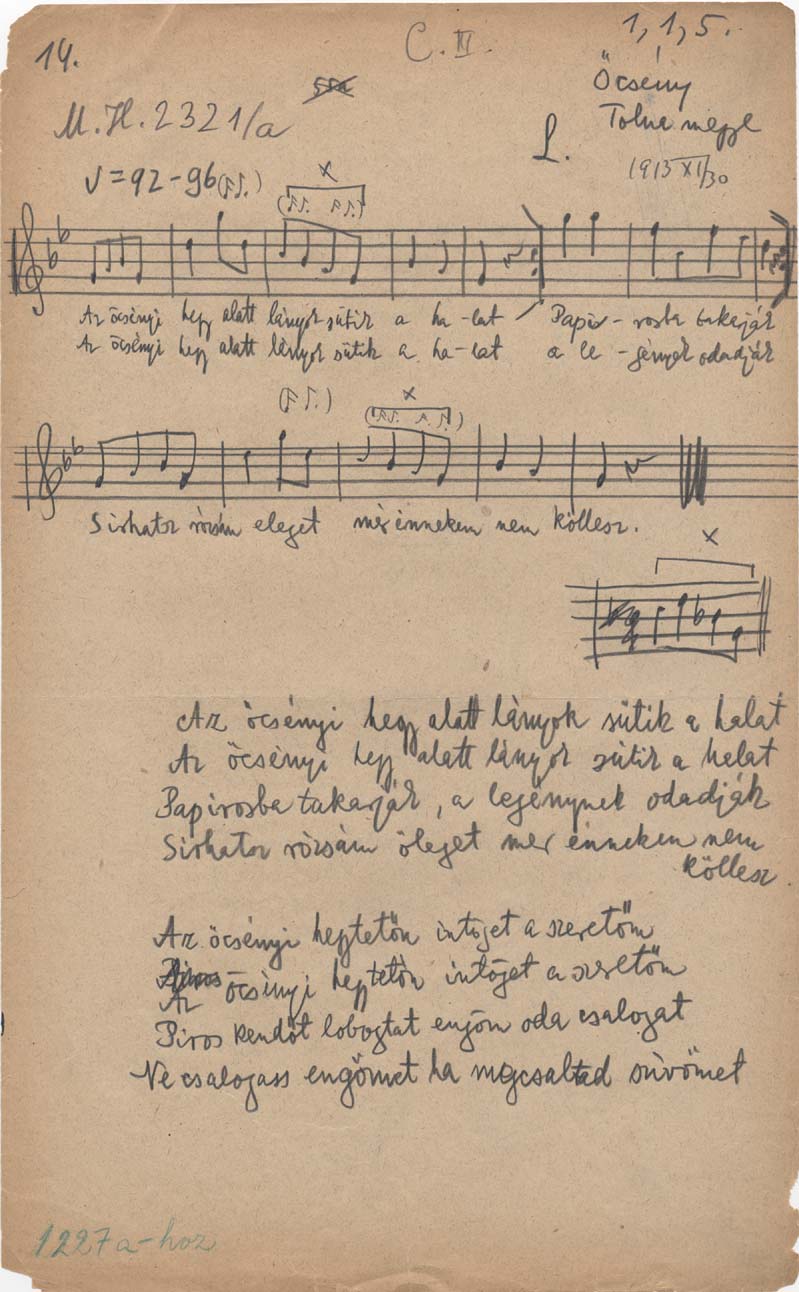 14.
C. III.
1, 1, 5.
Öcsény
M. H. 2321/a
Tolna megye
L.
1913 XI/30
♩ = 92-96
x
Az öcsényi hegy alatt lányok sütik a ha-lat Papi-rosba takarják
Az öcsényi hegy alatt lányok sütik a ha-lat a le-gények odadják
x
Sirhatsz rózsám eleget mér énneken nem köllesz.
x
Az öcsényi hegy alatt lányok sütik a halat
Az öcsényi hegy alatt lányok sütik a halat
Papirosba takarják, a legénynek odadják
Sirhatsz rózsám öleget mer énneken nem
köllesz.
Az öcsényi hegytetőn intöget a szeretőm
Az öcsényi hegytetőn intöget a szeretőm
Piros kendőt lobogtat engöm oda csalogat
Ne csalogass engömet ha megcsaltad szüvömet
1227a-hoz